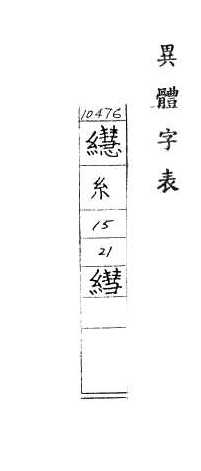 異體字表
10476
糸
15
21